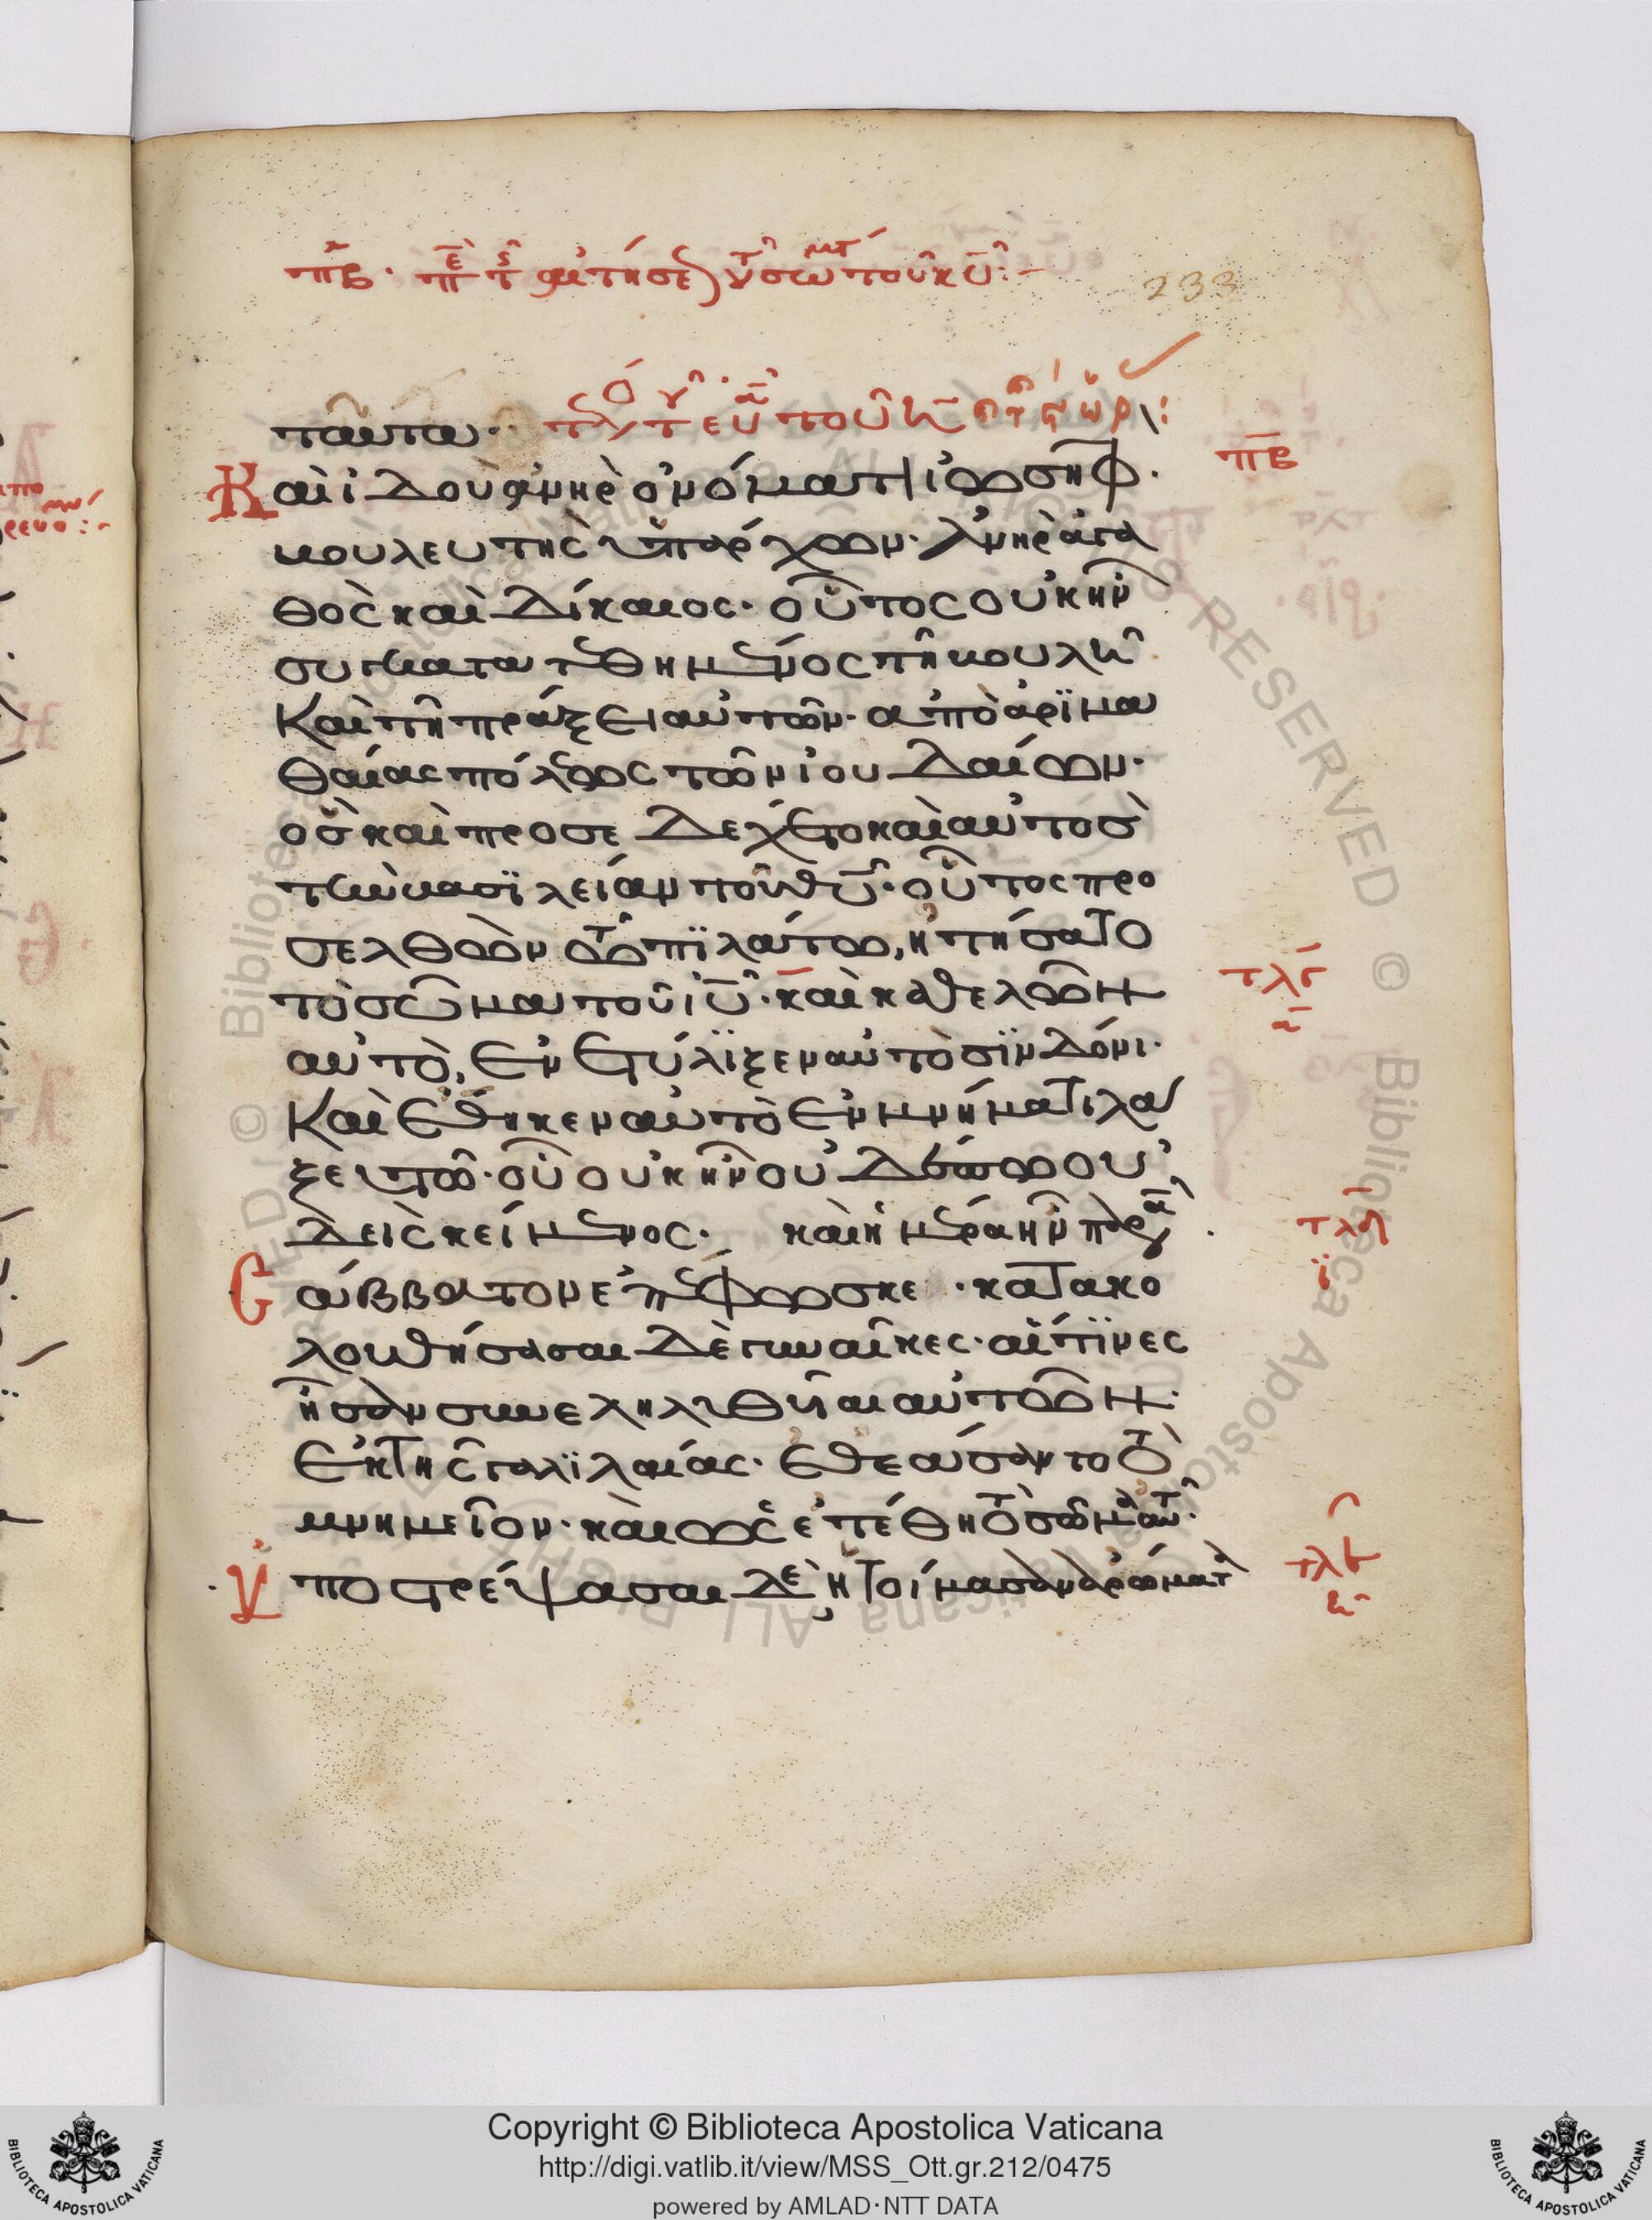 πβ. π τ αἰτήσε τοῦ κυ:-
233
ταῦτα.
Καὶ ἰδοὺ ἀνὴρ ὀνόματι ἰωσὴφ.
βουλευτὴς ὑπάρχων. ἀνὴρ ἀγα
θὸς καὶ δίκαιος. οὗτος οὐκ ἦν
συγκατατεθημένος τῆ βουλῆ.
Καὶ τῆ πράξει αὐτῶν. ἀπὸ ἀρϊμα
θαίας πόλεως τῶν ἰουδαίων.
ὃσ καὶ προσεδέχετο καὶ αὐτοσ
τὴν βασϊλείαν τοῦ θυ. οὗτος προ
σελθὼν τῶ πϊλάτω, ἠτήσατο
τὸ σῶμα τοῦ ιυ. καὶ καθελὼν
αὐτὸ, ἐνετύλϊξεν αὐτὸ σϊνδόνι.
Καὶ ἔθηκεν αὐτὸ ἐν μνήματι λα
ξευτῶ. οὗ οὐκ ἦν οὐδέπω οὐ
δεὶς κείμενος. καὶ ἡμέρα ἦν παρα
σάββατον ἐπέφωσκε. κατακο
λουθήσασαι δὲ γυναῖκες. αἵτϊνες
ἦσαν συνεληλυθῆαι αὐτῶ
ἐκ τῆς γαλϊλαίας. ἐθεάσαντο τὸ
μνημεῖον. καὶ ὡς ἐπέθη τὸ σῶμα αὐτ.
ὑποστρέψασαι δὲ ἡτοίμασαν ἀρώματα
πβ
τλ
τλ
τλ
Copyright © Biblioteca Apostolica Vaticana
http://digi.vatlib.it/view/MSS_Ott.gr.212/0475
powered by AMLAD·NTT DATA
BIBLIOTECA APOSTOLICA VATICANA
BIBLIOTECA APOSTOLICA VATICANA